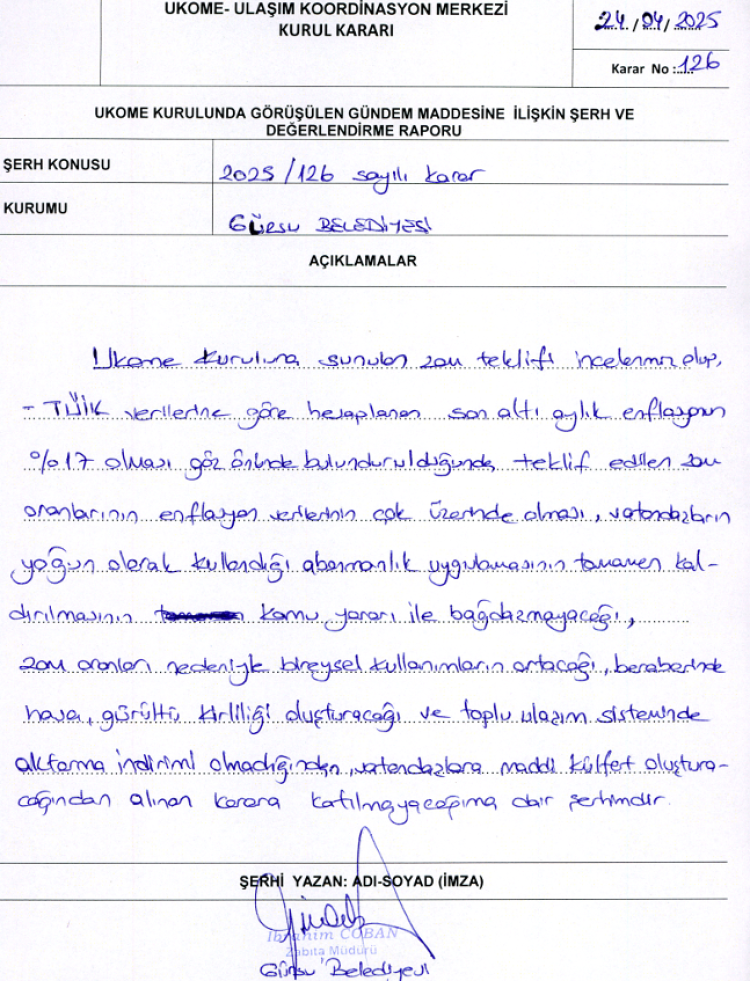 UKOME- ULAŞIM KOORDİNASYON MERKEZİ
KURUL KARARI
24/04/2025
Karar No :126
UKOME KURULUNDA GÖRÜŞÜLEN GÜNDEM MADDESİNE İLİŞKİN ŞERH VE
DEĞERLENDİRME RAPORU
ŞERH KONUSU
2025/126 sayılı karar
KURUMU
GÜRSU BELEDİYESİ
AÇIKLAMALAR
Ukome kuruluna sunulan zam teklifi incelenmiz olup,
- TÜİK verilerine göre hesaplanan son altı aylık enflasyonun
%17 olması göz önünde bulundurulduğunda, teklif edilen zam
oranlarının enflasyon verilerinin çok üzerinde olması, vatandaşların
yoğun olarak kullandığı abonmanlık uygulamasının tamamen kal-
dırılmasının kamu yararı ile bağdaşmayacağı,
zam oranları nedeniyle bireysel kullanımların artacağı, beraberinde
hava, gürültü kirliliği oluşturacağı ve toplu ulaşım sisteminde
aktarma indirimi olmadığından, vatandaşlara maddi külfet oluştura-
cağından alınan karara katılmayacağıma dair şerhimdir.
ŞERHİ YAZAN: ADI-SOYAD (İMZA)
İbrahim ÇOBAN
Zabıta Müdürü
Gürsu Belediyesi